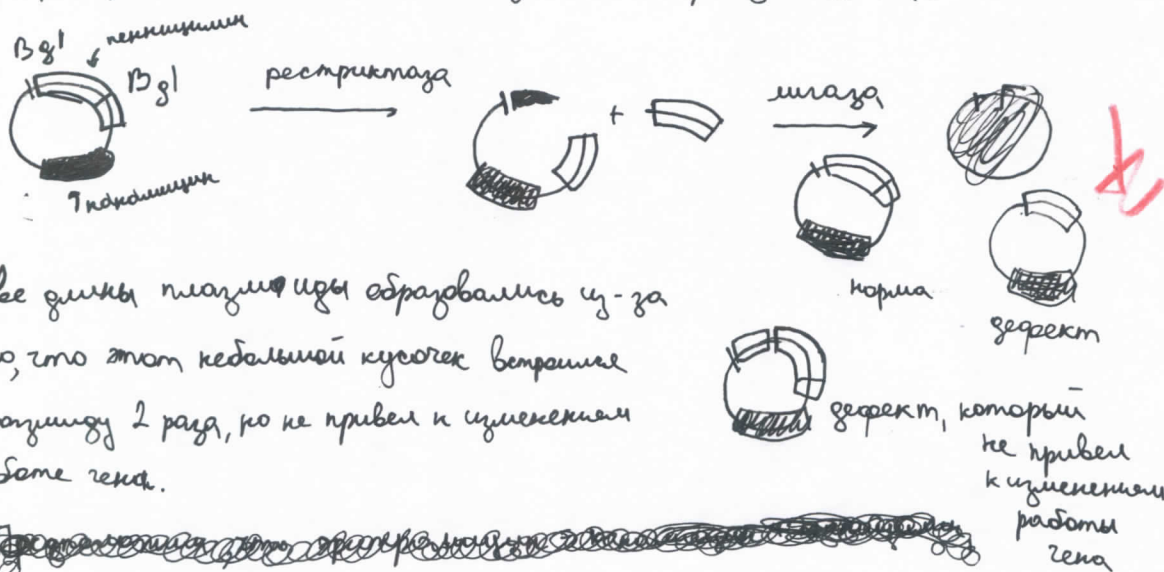 Bgl
пенницилин
Bgl
рестриктаза
+
лигаза
канамицин
норма
дефект
ее длины плазмиды образовались из-за
о, что этот небольшой кусочек встроился
азмиду 2 раза, но не привел к изменением
боте гена.
дефект, который
не привел
к изменениям
работы
гена